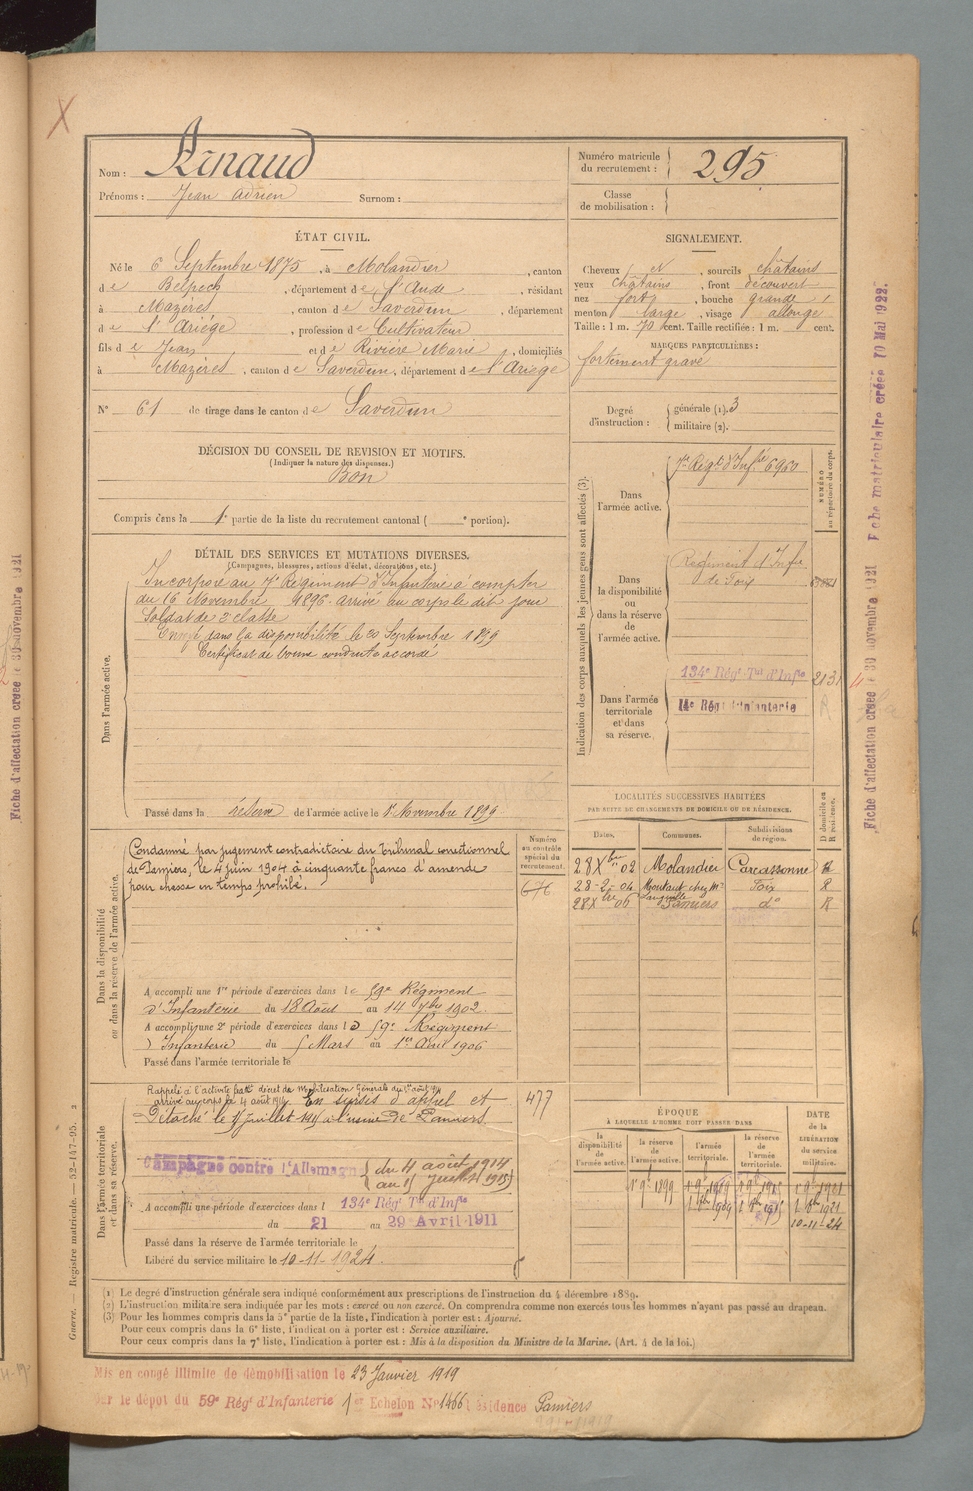 Nom : Arnaud
Prénoms : Jean Adrien Surnom :
Numéro matricule du recrutement : 295
Classe de mobilisation :
ÉTAT CIVIL.
Né le 6 Septembre 1875, à Molandier, canton
de Belpech, département de l'Aude, résidant
à Mazères, canton de Saverdun, département
de l'Ariège, profession de Cultivateur
fils de Jean et de Rivière Marie, domiciliés
à Mazères, canton de Saverdun, département de l'Ariège
N° 61 de tirage dans le canton de Saverdun
SIGNALEMENT.
Cheveux et, sourcils châtains
yeux châtains, front découvert
nez fort, bouche grande,
menton large, visage allongé
Taille : 1 m. 70 cent. Taille rectifiée : 1 m. cent.
MARQUES PARTICULIÈRES :
fortement gravé
Degré d'instruction : générale (1). 3
militaire (2).
DÉCISION DU CONSEIL DE REVISION ET MOTIFS.
(Indiquer la nature des dispenses.)
Bon
Compris dans la 1e partie de la liste du recrutement cantonal ( e portion).
DÉTAIL DES SERVICES ET MUTATIONS DIVERSES.
(Campagnes, blessures, actions d'éclat, décorations, etc.)
Dans l'armée active.
Incorporé au 7e Régiment d'Infanterie à compter
du 16 Novembre 1896. Arrivé au corps le dit jour
Soldat de 2e classe
Envoyé dans la disponibilité le 20 Septembre 1899
Certificat de bonne conduite accordé
Passé dans la réserve de l'armée active le 1er Novembre 1899
Indication des corps auxquels les jeunes gens sont affectés (3).
NUMÉRO au répertoire du corps.
Dans l'armée active.
7e Régt d'Infie 6960
Dans la disponibilité ou dans la réserve de l'armée active.
Régiment d'Infie
de Foix
Dans l'armée territoriale et dans sa réserve.
134e Régt Tal d'Infie 2131
14e Régt d'Infanterie
LOCALITÉS SUCCESSIVES HABITÉES
PAR SUITE DE CHANGEMENTS DE DOMICILE OU DE RÉSIDENCE.
Dates. Communes. Subdivisions de région. D domicile ou R résidence.
28 Xbre 02 Molandier Carcassonne R
28-2-04 Montaut chez Mr Foix R
28 Xbre 06 Pamiers do R
Dans la disponibilité ou dans la réserve de l'armée active.
Numéro au contrôle spécial du recrutement.
676
Condamné par jugement contradictoire du Tribunal correctionnel
de Pamiers, le 4 juin 1904 à cinquante francs d'amende
pour chasse en temps prohibé.
A accompli une 1re période d'exercices dans le 59e Régiment
d'Infanterie du 18 Août au 14 7bre 1902.
A accompli une 2e période d'exercices dans le 59e Régiment
d'Infanterie du 5 Mars au 1er Avril 1906
Passé dans l'armée territoriale le
Dans l'armée territoriale et dans sa réserve.
Rappelé à l'activité décret de mobilisation Générale du 1er août 1914
arrivé au corps le 4 août 1914. En sursis d'appel et
Détaché le 15 Juillet 1915 à l'usine de Pamiers
477
Campagne contre l'Allemagne du 4 août 1914
au 15 Juillet 1915
A accompli une période d'exercices dans l 134e Régt Tal d'Infie
du 21 au 29 Avril 1911
Passé dans la réserve de l'armée territoriale le
Libéré du service militaire le 10-11-1924.
ÉPOQUE
À LAQUELLE L'HOMME DOIT PASSER DANS
la disponibilité de l'armée active. la réserve de l'armée active. l'armée territoriale. la réserve de l'armée territoriale.
DATE de la LIBÉRATION du service militaire.
10-11-24
(1) Le degré d'instruction générale sera indiqué conformément aux prescriptions de l'instruction du 4 décembre 1889.
(2) L'instruction militaire sera indiquée par les mots : exercé ou non exercé. On comprendra comme non exercés tous les hommes n'ayant pas passé au drapeau.
(3) Pour les hommes compris dans la 5e partie de la liste, l'indication à porter est : Ajourné.
Pour ceux compris dans la 6e liste, l'indication à porter est : Service auxiliaire.
Pour ceux compris dans la 7e liste, l'indication à porter est : Mis à la disposition du Ministre de la Marine. (Art. 4 de la loi.)
Mis en congé illimité de démobilisation le 23 Janvier 1919
par le dépôt du 59e Régt d'Infanterie 1er Echelon No 1466 résidence Pamiers
Guerre. — Registre matricule. — 52-147-95. 2
Fiche d'affectation créée le 30 novembre 1921
Fiche d'affectation créée le 30 novembre 1921 Fiche matriculaire créée 10 Mai 1922.